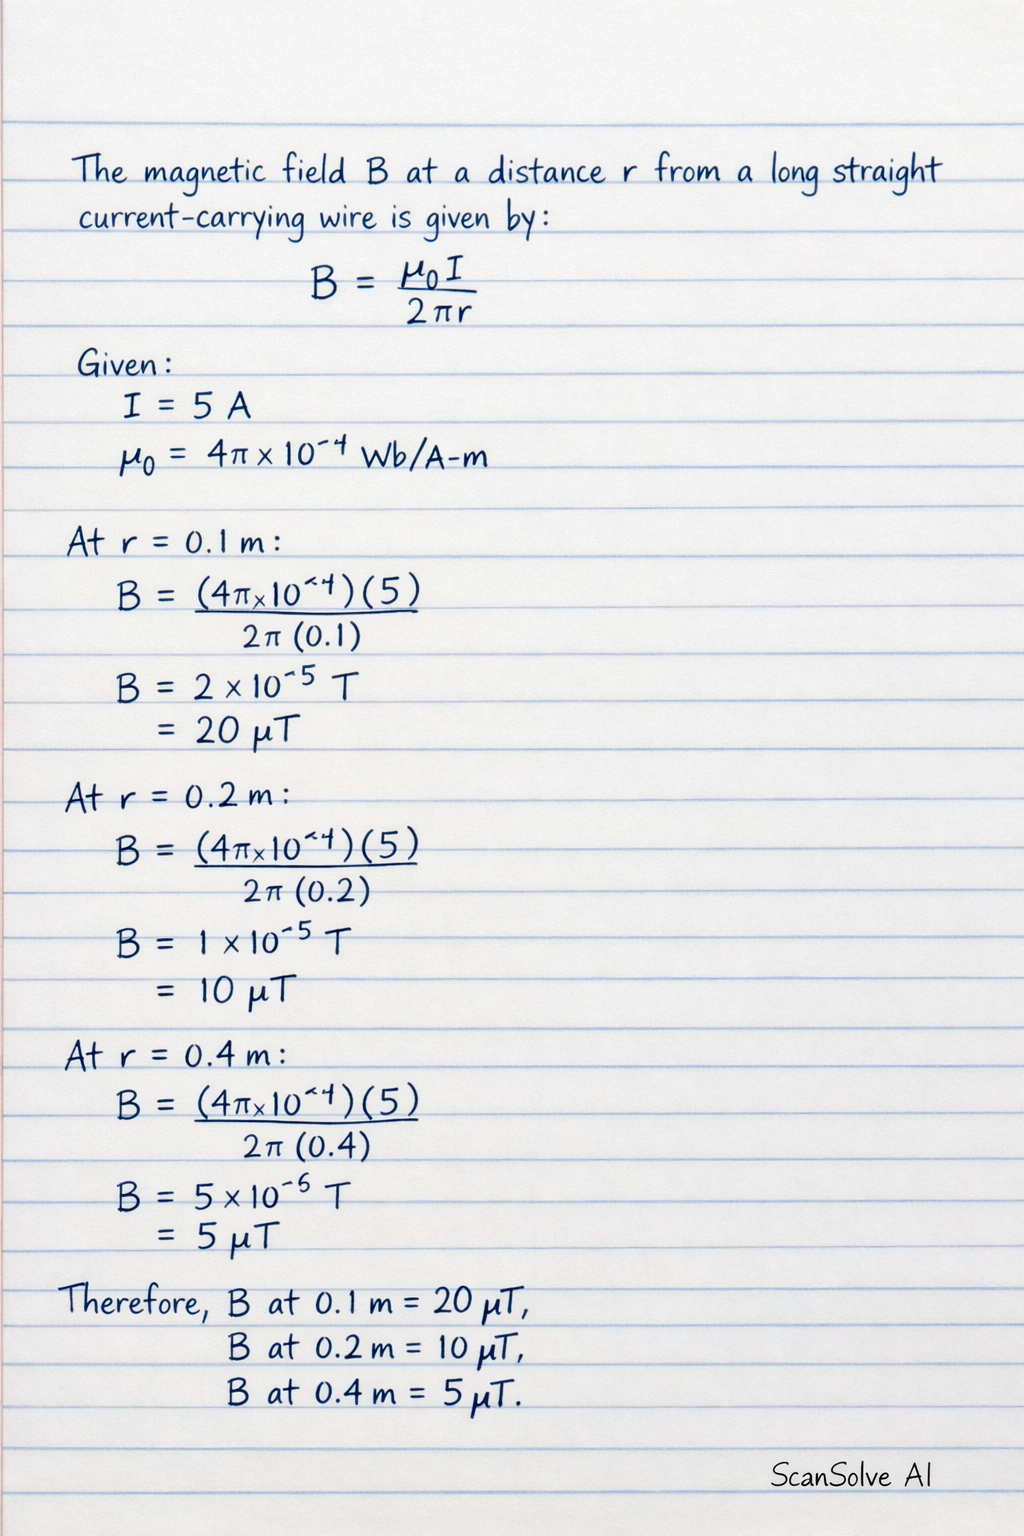 The magnetic field B at a distance r from a long straight
current-carrying wire is given by:
B = μ₀I
2πr
Given:
I = 5 A
μ₀ = 4π × 10⁻⁴ Wb/A-m
At r = 0.1 m:
B = (4π×10^<4)(5)
2π (0.1)
B = 2 × 10⁻⁵ T
= 20 μT
At r = 0.2 m:
B = (4π×10^<4)(5)
2π (0.2)
B = 1 × 10⁻⁵ T
= 10 μT
At r = 0.4 m:
B = (4π×10^<4)(5)
2π (0.4)
B = 5 × 10⁻⁶ T
= 5 μT
Therefore, B at 0.1 m = 20 μT,
B at 0.2 m = 10 μT,
B at 0.4 m = 5 μT.
ScanSolve AI